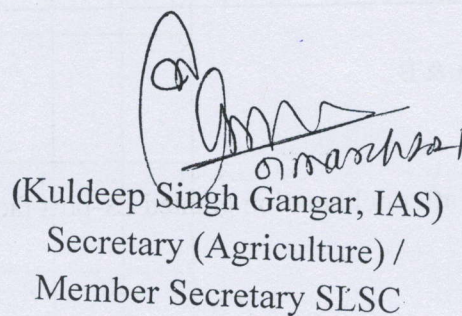 (Kuldeep Singh Gangar, IAS)
Secretary (Agriculture) /
Member Secretary SLSC